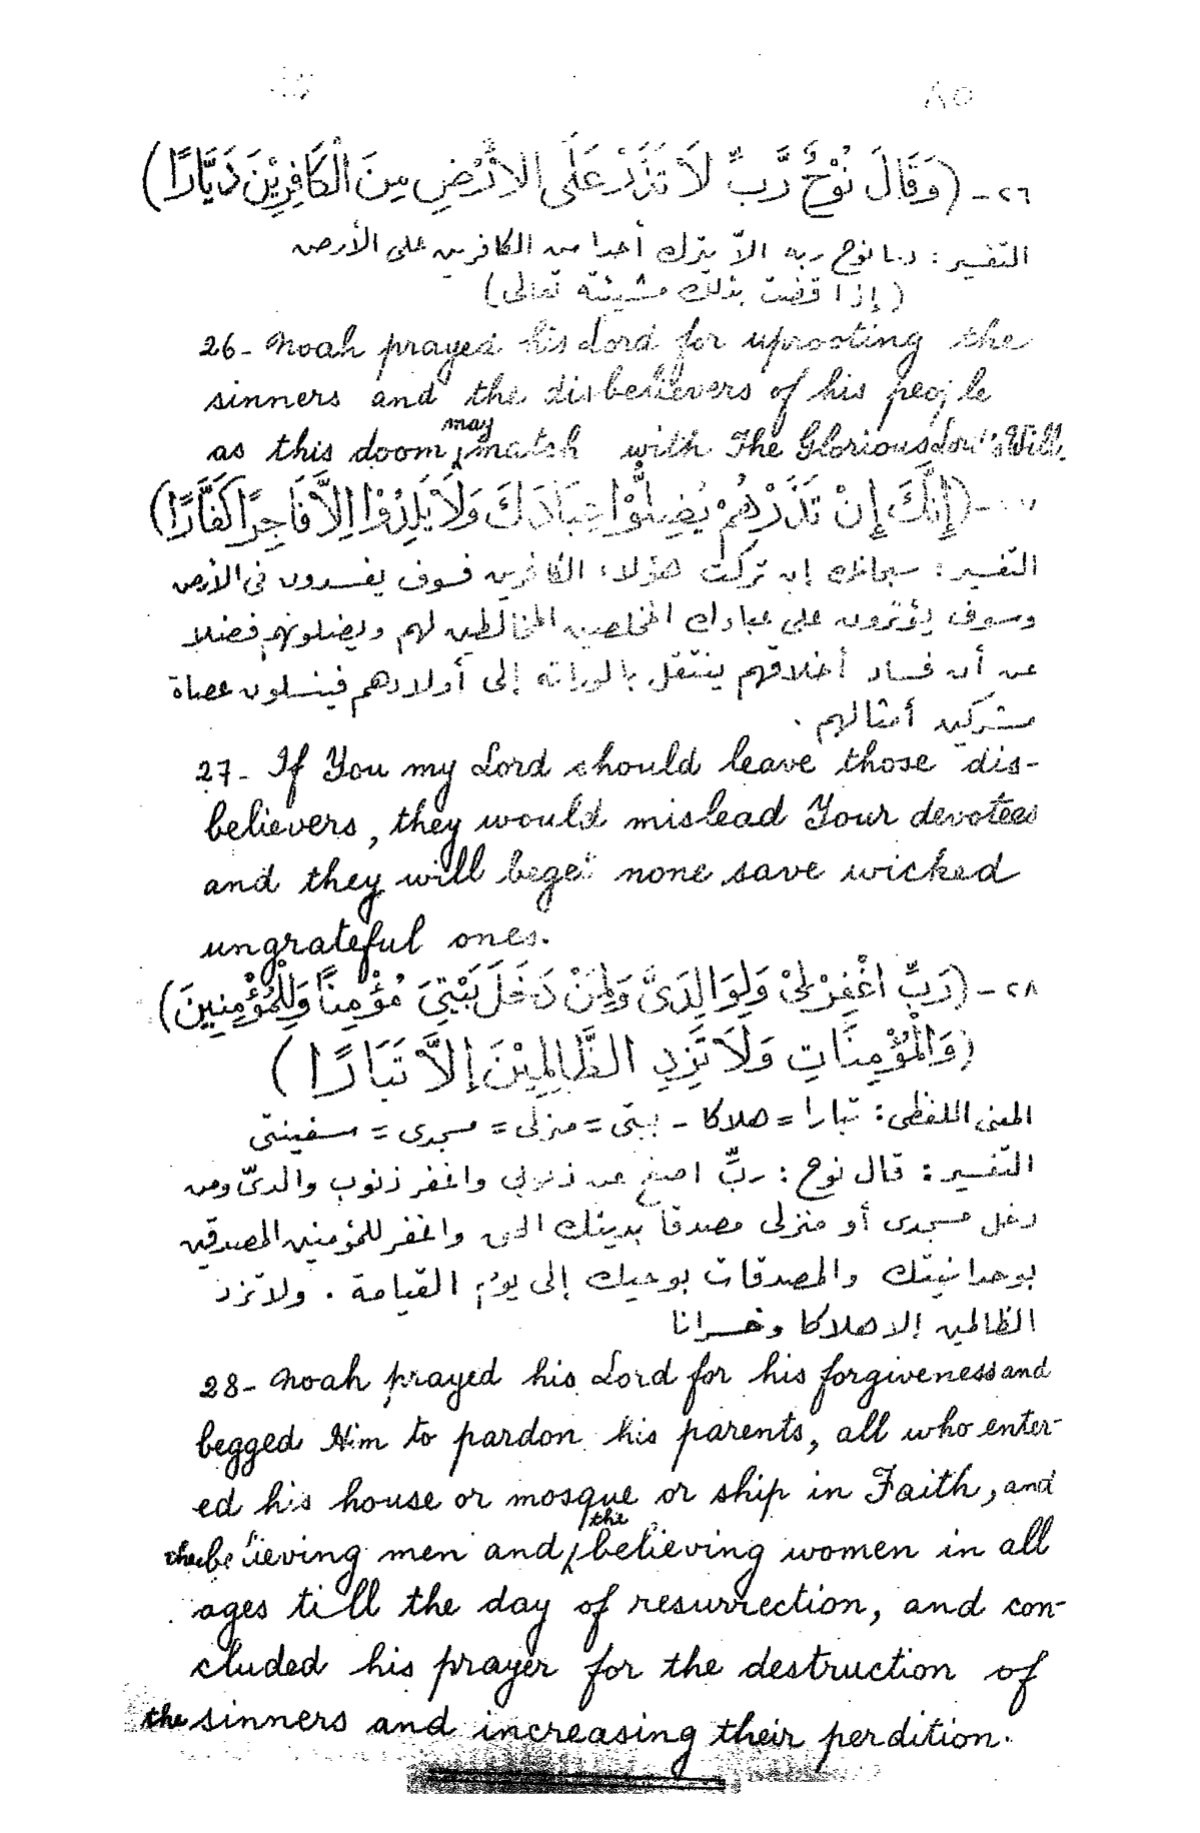 ٨٥
٢٦ - (وَقَالَ نُوْحٌ رَّبِّ لَا تَذَرْ عَلَى الْأَرْضِ مِنَ الْكَافِرِيْنَ دَيَّارًا)
التفسير : دعا نوح ربه ألاّ يترك أحدا من الكافرين على الأرض
(إذا قضت بذلك مشيئته تعالى)
26- Noah prayed his Lord for uprooting the
sinners and the disbelievers of his people
as this doom may match with The Glorious Lord's Will.
٢٧ - (إِنَّكَ إِنْ تَذَرْهُمْ يُضِلُّوْا عِبَادَكَ وَلَا يَلِدُوْا إِلَّا فَاجِرًا كَفَّارًا)
التفسير : سبحانك إن تركت هؤلاء الكافرين فسوف يفسدون فى الأرض
وسوف يؤثرون على عبادك المخلصين المخالطين لهم ويضلونهم فضلا
عن أن فساد أخلاقهم ينتقل بالوراثة إلى أولادهم فينسلون عصاة
مشركين أمثالهم .
27- If You my Lord should leave those dis-
believers, they would mislead Your devotees
and they will beget none save wicked
ungrateful ones.
٢٨ - (رَبِّ اغْفِرْ لِىْ وَلِوَالِدَىَّ وَلِمَنْ دَخَلَ بَيْتِىَ مُؤْمِنًا وَلِلْمُؤْمِنِينَ)
(وَالْمُؤْمِنَاتِ وَلَا تَزِدِ الظَّالِمِيْنَ إِلَّا تَبَارًا)
المعنى اللفظى : تبارا = هلاكا - بيتى = منزلى = مسجدى = سفينتى
التفسير : قال نوح : ربِّ اصفح عن ذنوبى واغفر ذنوب والدىّ ومن
دخل مسجدى أو منزلى مصدقا بدينك الحق واغفر للمؤمنين المصدقين
بوحدانيتك والمصدقات بوحيك إلى يوم القيامة . ولا تزد
الظالمين إلا هلاكا وخسرانا
28- Noah prayed his Lord for his forgiveness and
begged Him to pardon his parents, all who enter-
ed his house or mosque or ship in Faith, and
the believing men and the believing women in all
ages till the day of resurrection, and con-
cluded his prayer for the destruction of
the sinners and increasing their perdition.